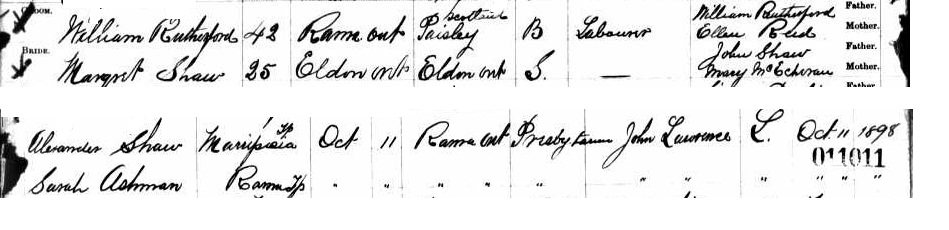 GROOM. William Rutherford 42 Rama ont Paisley Scotland B Labourer William Rutherford Father.
Ellen Reid Mother.
BRIDE. Margret Shaw 25 Eldon ont Eldon ont S. — John Shaw Father.
Mary McEchern Mother.
Father.
Alexander Shaw Mariposa Tp Oct 11 Rama ont Presbyterian John Lawrence L. Oct 11 1898
011011
Sarah Ashman Rama Tp " " " " " " " " " "